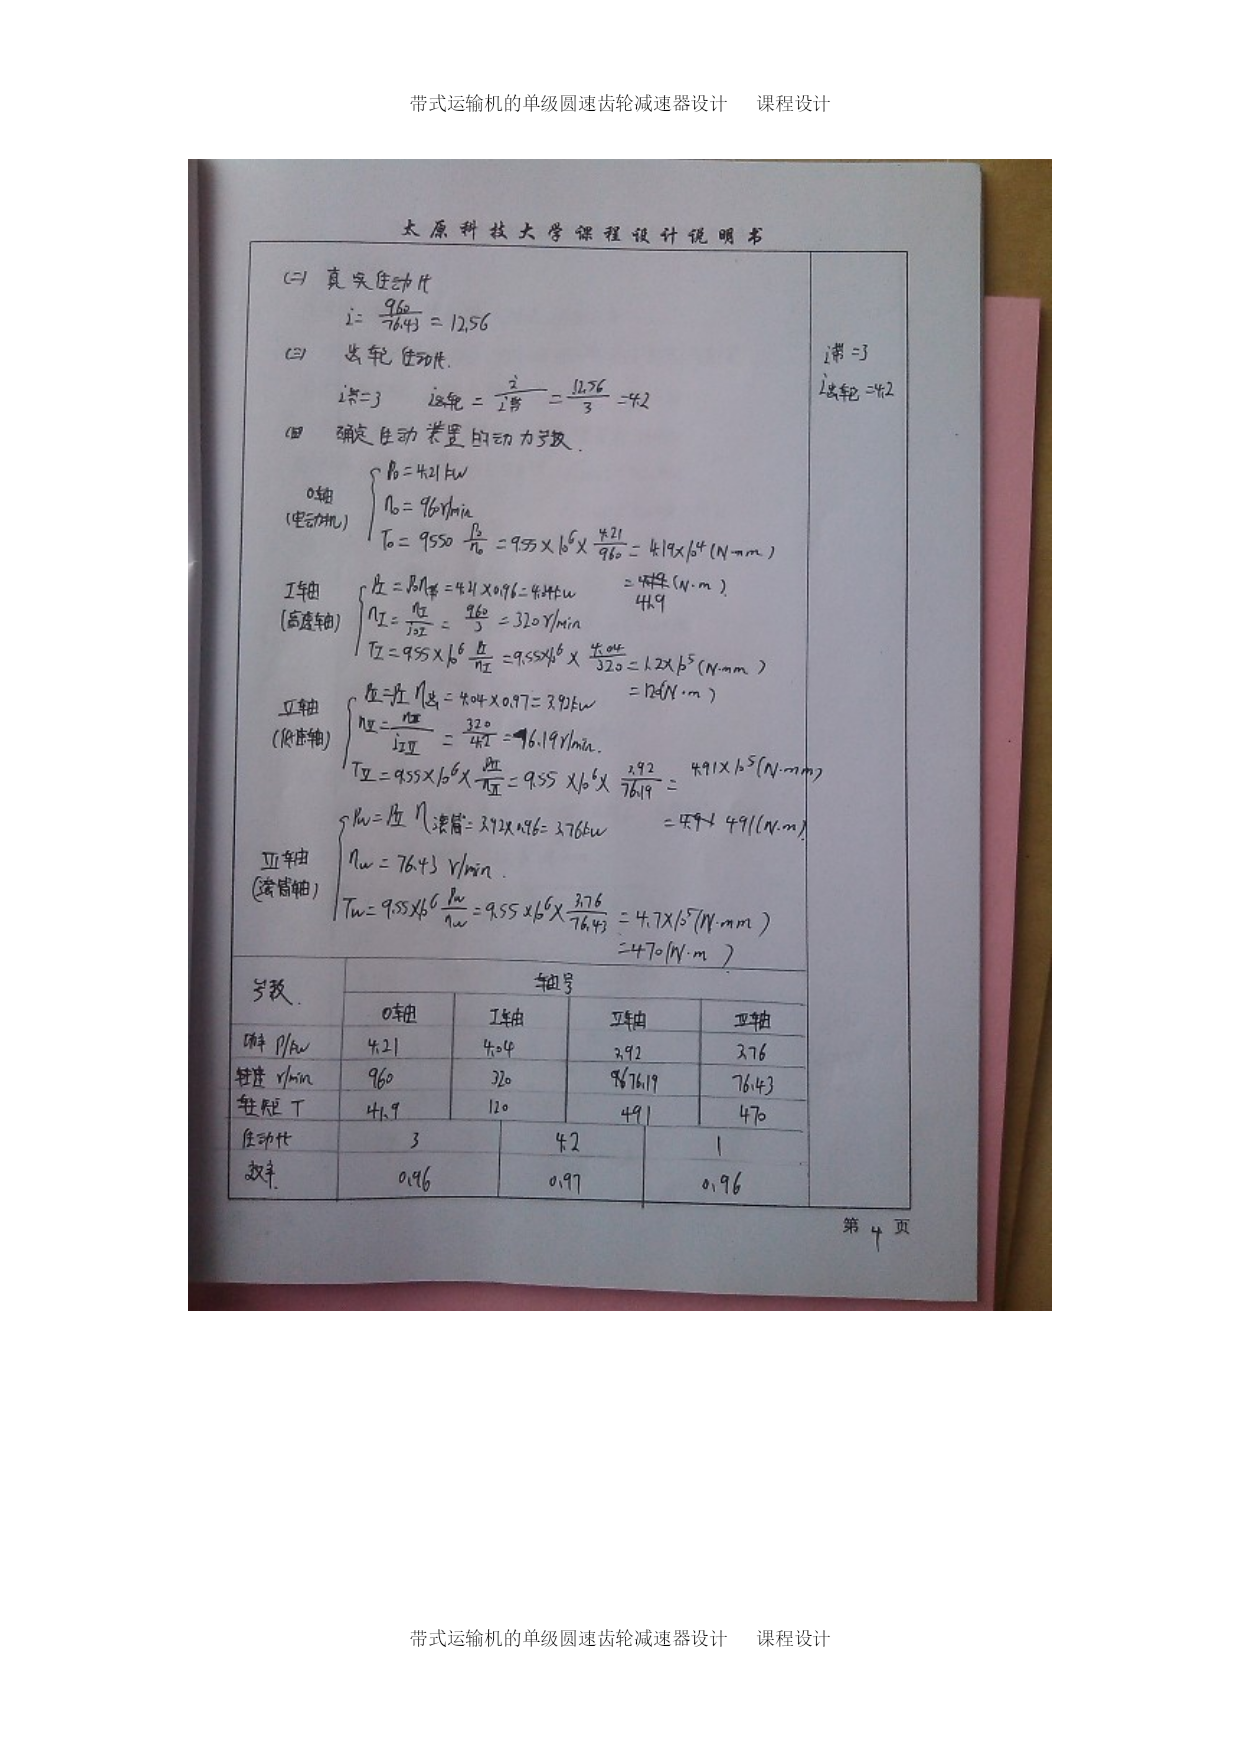 带式运输机的单级圆速齿轮减速器设计 课程设计
太原科技大学课程设计说明书
(二) 真实传动比
i = 960/76.43 = 12.56
(三) 齿轮传动比.
i带=3 i齿轮 = i/i带 = 12.56/3 = 4.2
i带=3
i齿轮=4.2
(四 确定传动装置的动力参数.
0轴
(电动机)
P0 = 4.21kw
n0 = 960r/min
T0 = 9550 P0/n0 = 9.55×10^6× 4.21/960 = 4.19×10^4 (N·mm)
= (N·m)
41.9
I轴
(高速轴)
PI = P0η带 = 4.21×0.96 = 4.04kw
nI = nI/i0I = 960/3 = 320r/min
TI = 9.55×10^6 PI/nI = 9.55×10^6 × 4.04/320 = 1.2×10^5 (N·mm)
= 120(N·m)
II轴
(低速轴)
PII = PI η齿 = 4.04×0.97 = 3.92kw
nII = nI/iIII = 320/4.2 = 76.19r/min.
TII = 9.55×10^6× PII/nII = 9.55×10^6× 3.92/76.19 = 4.91×10^5(N·mm)
= 491(N·m)
III轴
(滚筒轴)
Pw = PII η滚筒 = 3.92×0.96 = 3.76kw
nw = 76.43 r/min.
Tw = 9.55×10^6 Pw/nw = 9.55×10^6× 3.76/76.43 = 4.7×10^5(N·mm)
=470(N·m)
参数. 轴号
0轴 I轴 II轴 III轴
功率 P/kw 4.21 4.04 3.92 3.76
转速 r/min 960 320 76.19 76.43
转矩 T 41.9 120 491 470
传动比 3 4.2 1
效率. 0.96 0.97 0.96
第 4 页
带式运输机的单级圆速齿轮减速器设计 课程设计